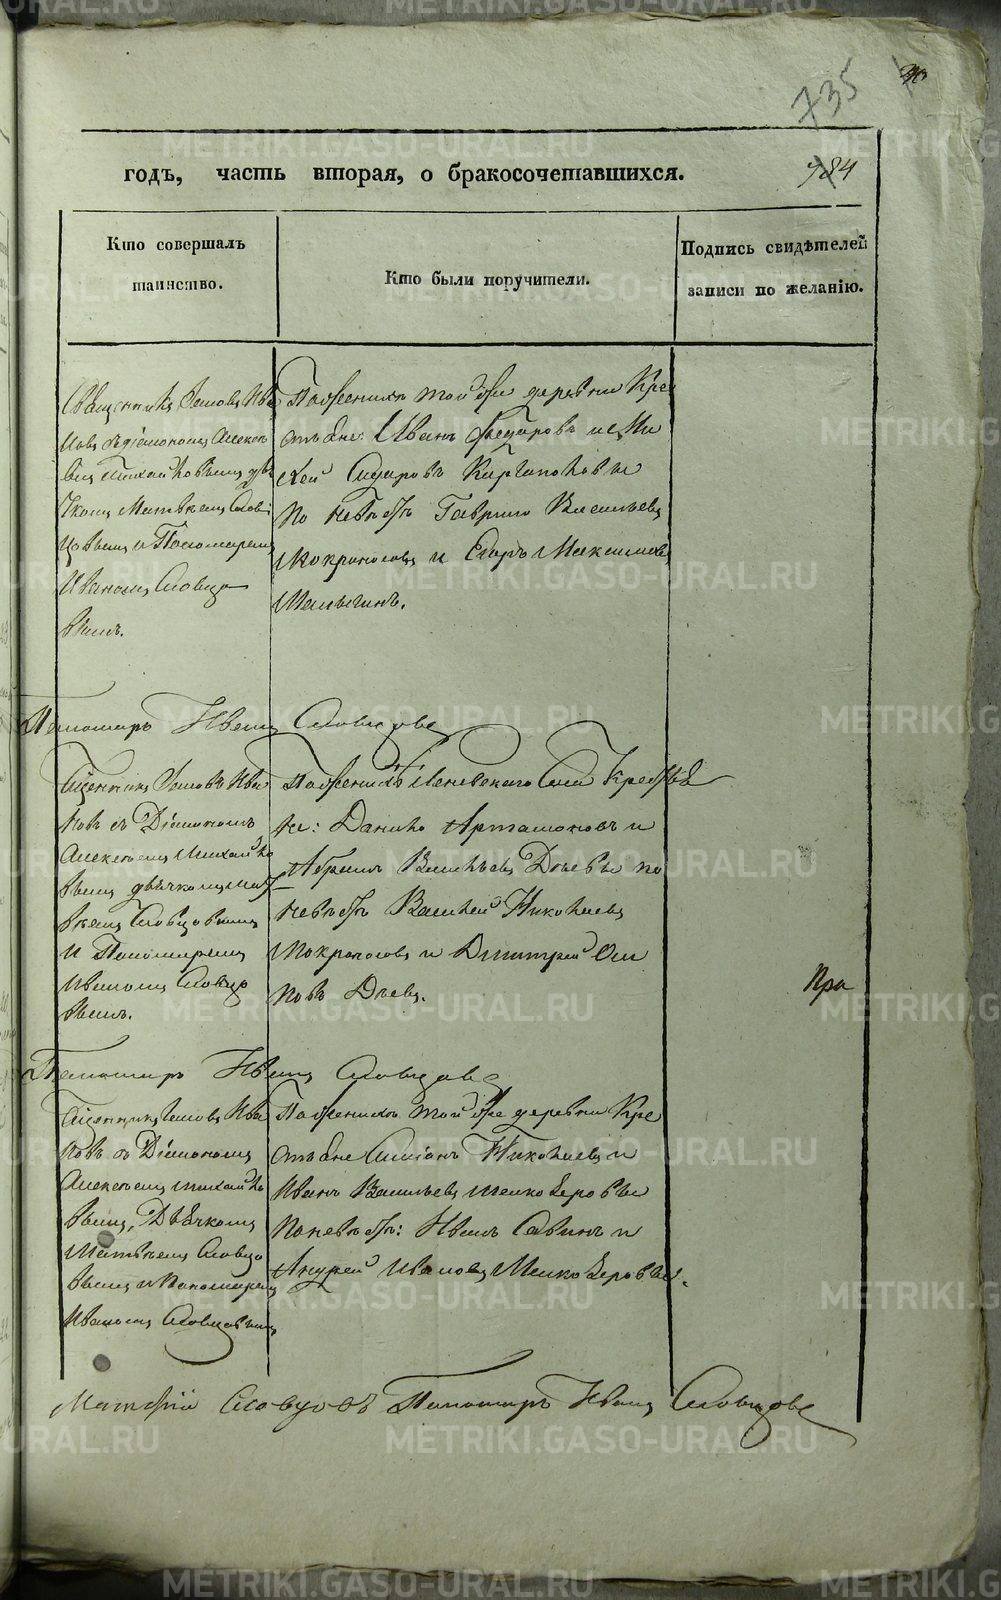 735
годъ, часть вторая, о бракосочетавшихся.
784
Кто совершалъ
таинство.
Кто были поручители.
Подпись свидѣтелей
записи по желанію.
Священникъ Іаковъ Ива
новъ съ діакономъ Алексѣ
емъ Михайловымъ дья
чкомъ Матвѣемъ Словцо
вымъ и Пономаремъ
Иваномъ Словцо
вымъ.
По женихѣ той же деревни Кре
стьяне: Иванъ Федоровъ и
Сидоровъ Каргаполовы
по невѣстѣ Гаврило Васильевъ
Мокроносовъ и Егоръ Максимовъ
Малыгинъ.
Пономарь Иванъ Словцовъ
Священникъ Іаковъ Ива
новъ съ Діакономъ
Алексѣемъ Михайло
вымъ дьячкомъ Мат
вѣемъ Словцовымъ
и Пономаремъ
Иваномъ Словцо
вымъ.
По женихѣ села Крестья
не: Данило Артамоновъ и
Абрамъ Васильевъ Дьевы по
невѣстѣ Василей Николаевъ
Мокроносовъ и Дмитрей Оси
повъ Дьевъ.
Пра
Пономарь Иванъ Словцовъ
Священникъ Іаковъ Ива
новъ съ Діакономъ
Алексѣемъ Михайло
вымъ, Дьячкомъ
Матвѣемъ Словцо
вымъ и Пономаремъ
Иваномъ Словцовымъ
По женихѣ той же деревни Кре
стьяне Симіонъ Николаевъ и
Иванъ Васильевъ Мелкозеровы
по невѣстѣ: Иванъ Савинъ и
Андрей Ивановъ Мелкозеровы.
Матфій Словцовъ Пономарь Иванъ Словцовъ
METRIKI.GASO-URAL.RU